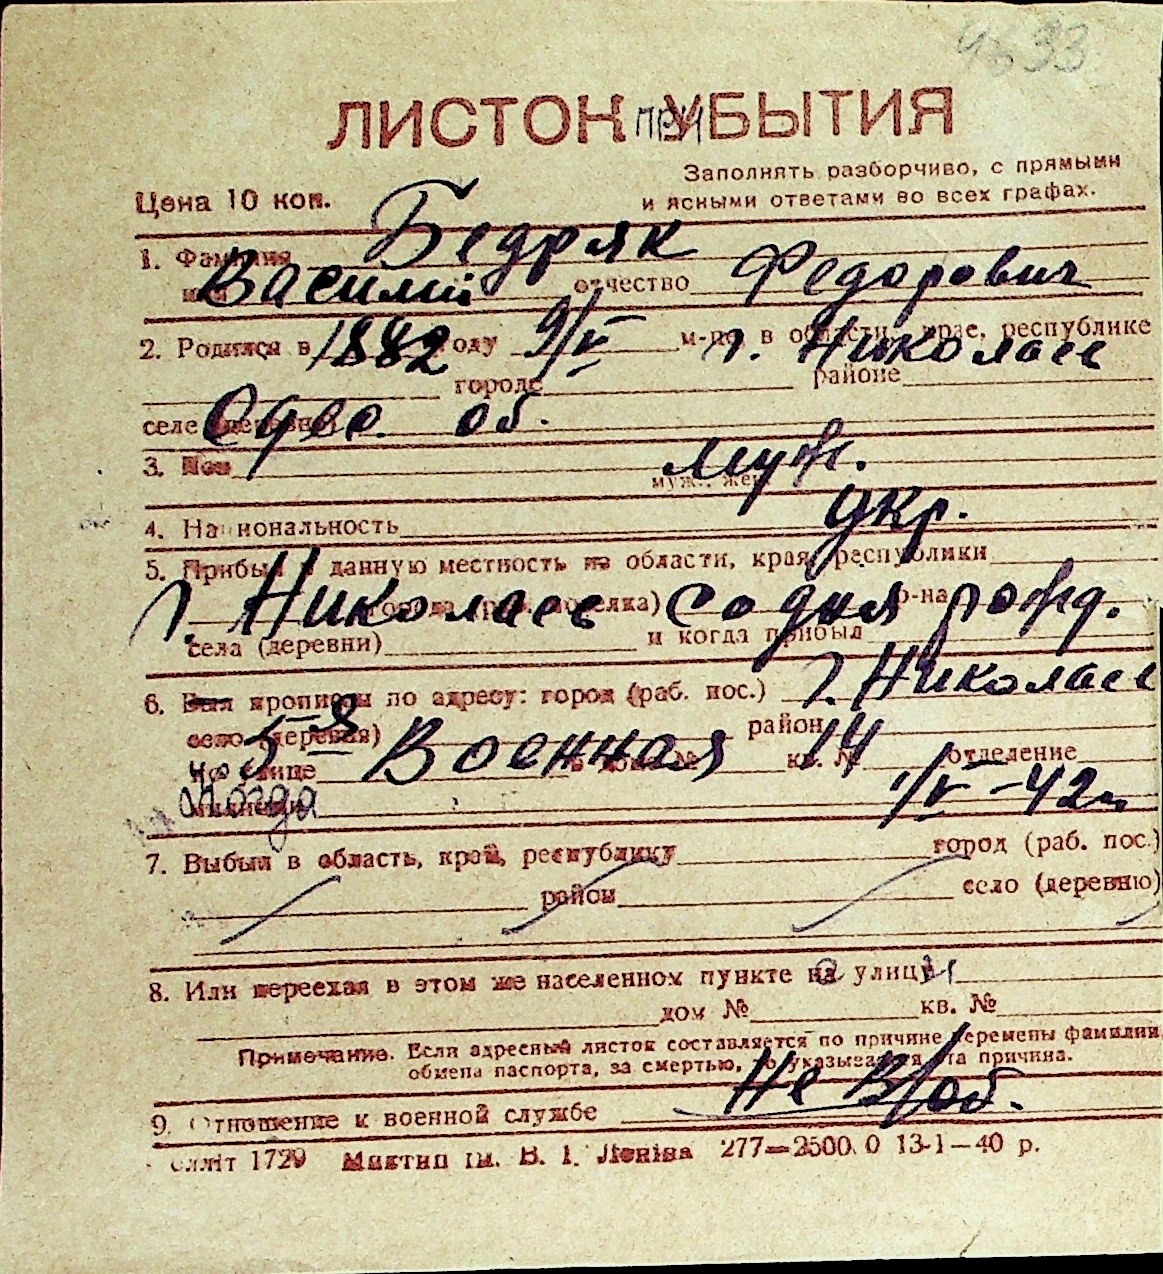 4633
ЛИСТОК ПРИ УБЫТИЯ
Заполнять разборчиво, с прямыми
и ясными ответами во всех графах.
Цена 10 коп.
1. Фамилия Бедряк
имя Василий отчество Федорович
2. Родился в 1882 году 9/V м-це, в области, крае, республике г. Николаев
городе районе
селе (деревне) Одес. об.
3. Пол муж.
муж., жен.
4. Национальность укр.
5. Прибыл в данную местность из области, края, республики
города (раб. поселка) р-на г. Николаев со дня рожд.
села (деревни) и когда прибыл
6. Был прописан по адресу: город (раб. пос.) г. Николаев
село (деревня) район
по улице 5я Военная дом № 14 кв. № отделение
милиции когда 1/V-42 г.
7. Выбыл в область, край, республику город (раб. пос.)
район село (деревню)
8. Или переехал в этом же населенном пункте на улицу
дом № кв. №
Примечание. Если адресный листок составляется по причине перемены фамилии,
обмена паспорта, за смертью, то указывается эта причина.
9. Отношение к военной службе Не в/об.
1729 Миктип ім. В. І. Леніна 277—2500.0 13-1—40 р.